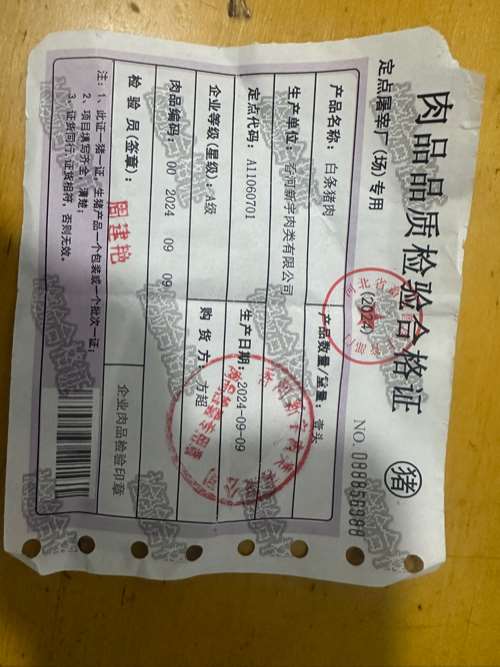 肉品品质检验合格证
猪
定点屠宰厂(场)专用
(2024)
NO.
产品名称: 白条猪肉
产品数量/重量: 壹头
生产单位: 香河新宇肉类有限公司
定点代码: A11060701
生产日期: 2024-09-09
企业等级(星级): A级
购货方: 方超
肉品编码: 00 2024 09 09
检验员(签章):
企业肉品检验印章
注: 1、此证一猪一证, 生猪产品一个包装或一个批次一证;
2、项目填写齐全, 清楚;
3、证货同行, 证货相符, 否则无效。